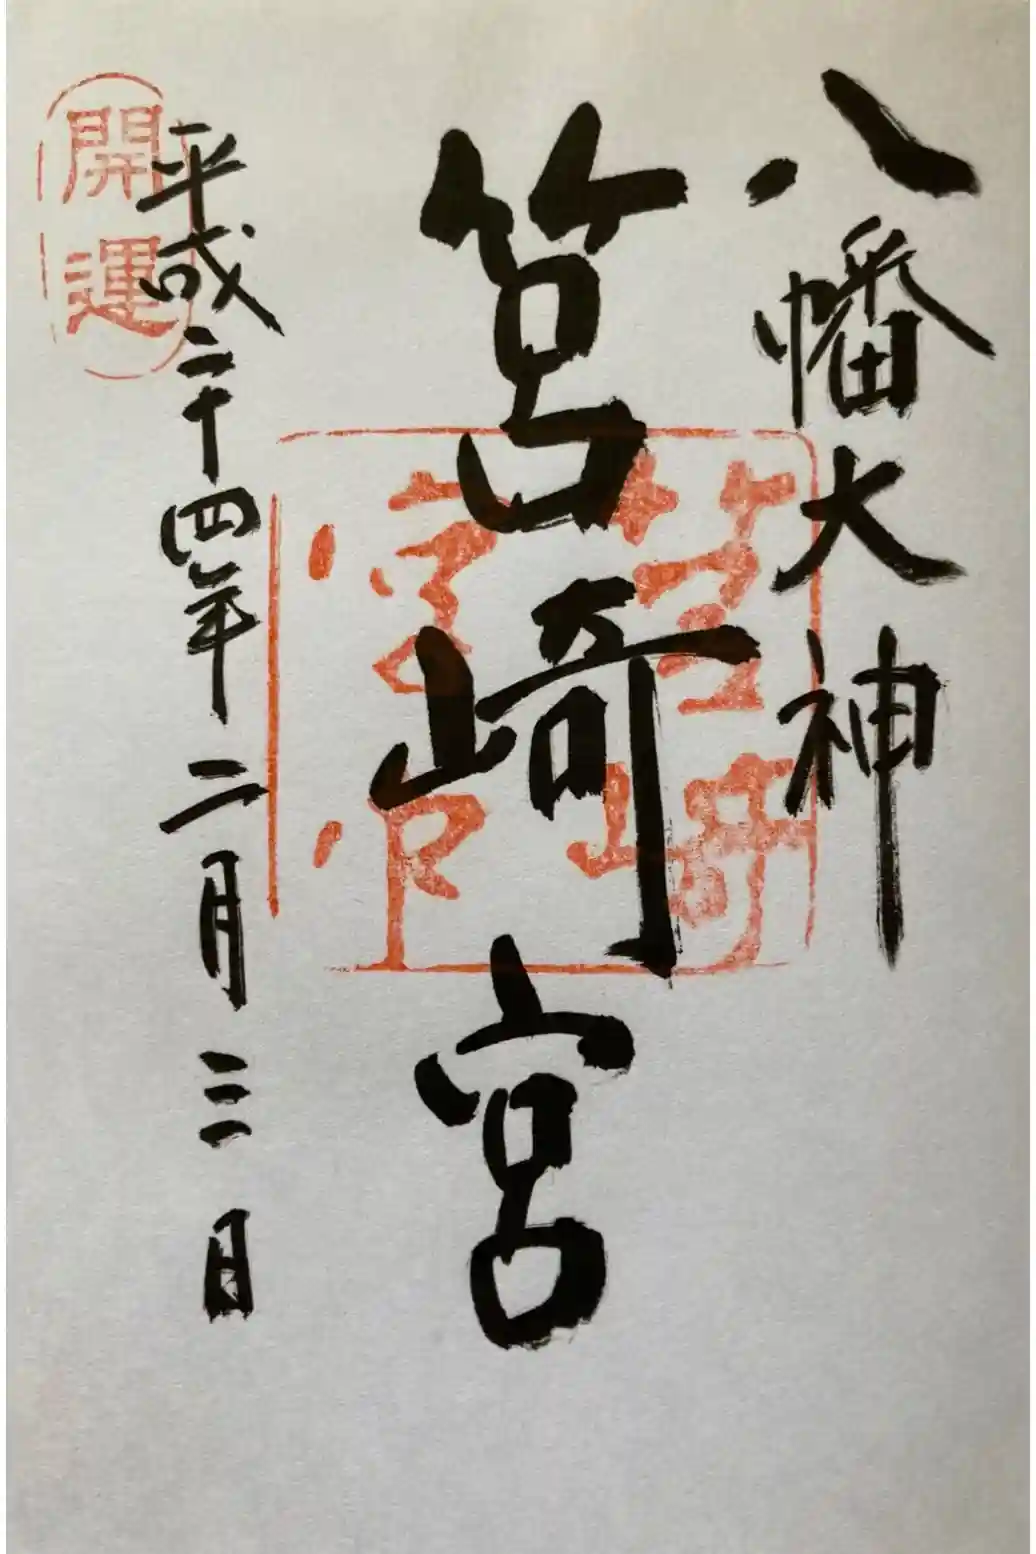 八幡大神
筥崎宮
筥崎宮
平成二十四年二月三日
開運